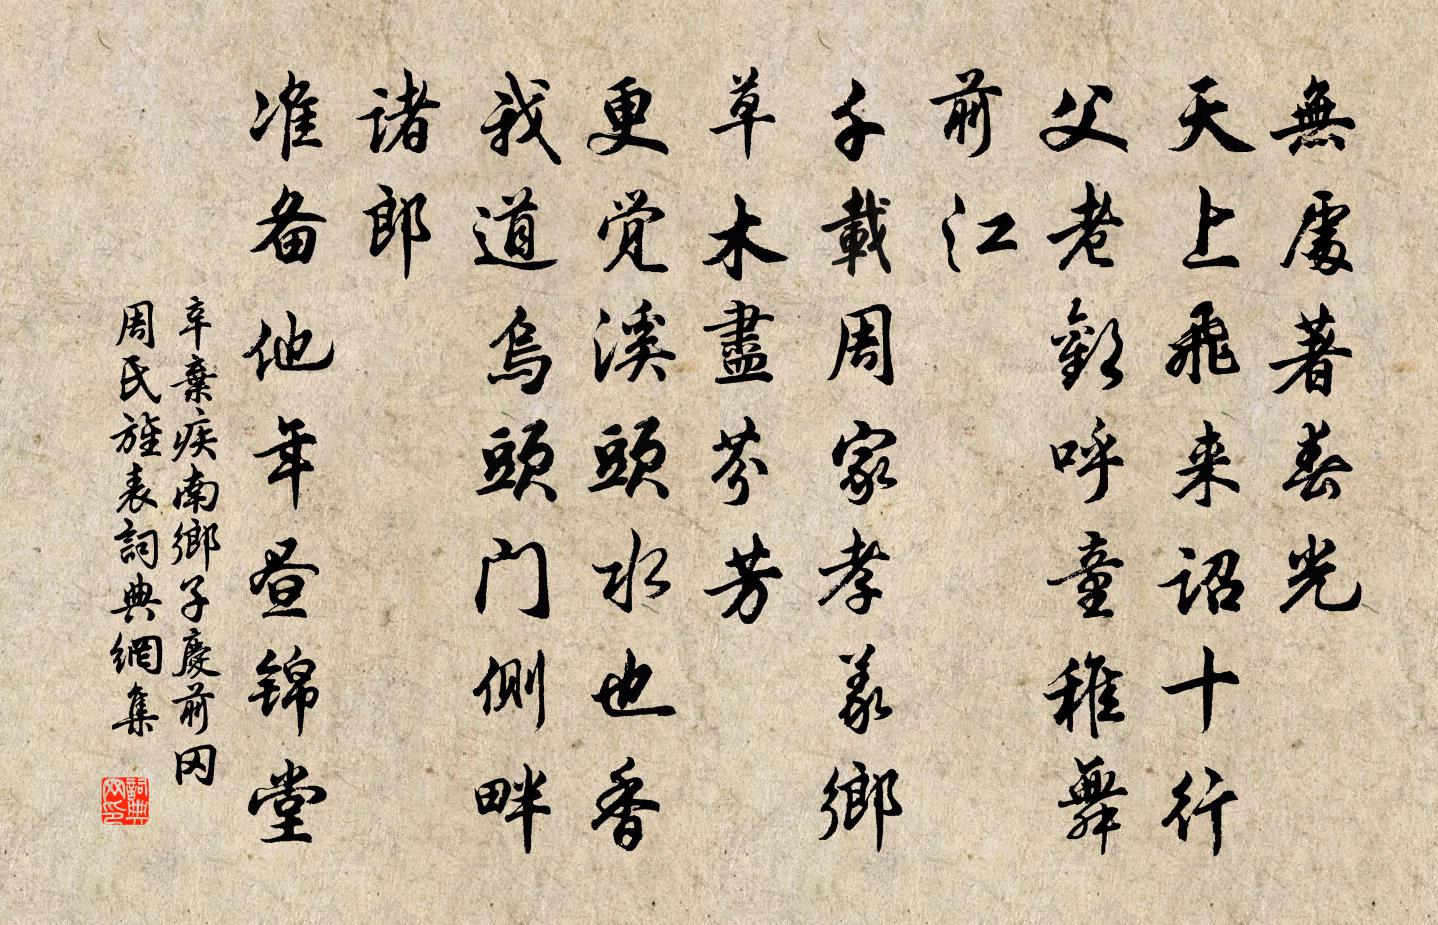 無處著春光
天上飛来詔十行
父老歡呼童稚舞
前江
千載周家孝義鄉
草木盡芬芳
更覺溪頭水也香
我道烏頭门側畔
諸郎
准备他年昼锦堂
辛棄疾南鄉子慶前冈
周氏旌表詞典網集
詞典网印